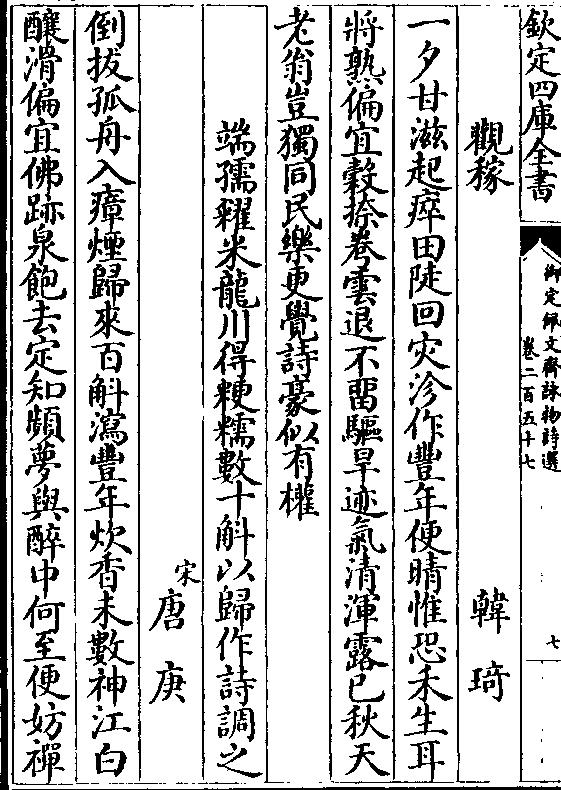 欽定四庫全書
御定佩文齋詠物詩選
卷二百五十七
七
觀稼 韓琦
一夕甘滋起瘁田陡回灾沴作豐年便晴惟恐禾生耳
將熟偏宜穀捺卷雲退不畱驅旱迹氣清渾露已秋天
老翁豈獨同民樂更覺詩豪似有權
端孺糴米龍川得粳糯數十斛以歸作詩調之
宋唐庚
倒拔孤舟入瘴煙歸來百斛瀉豐年炊香未數神江白
釀滑偏宜佛跡泉飽去定知頻夢與醉中何至便妨禪